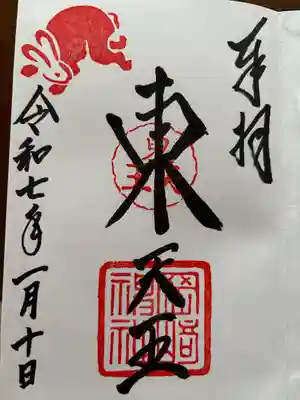 奉拝
東天王
令和七年一月十日